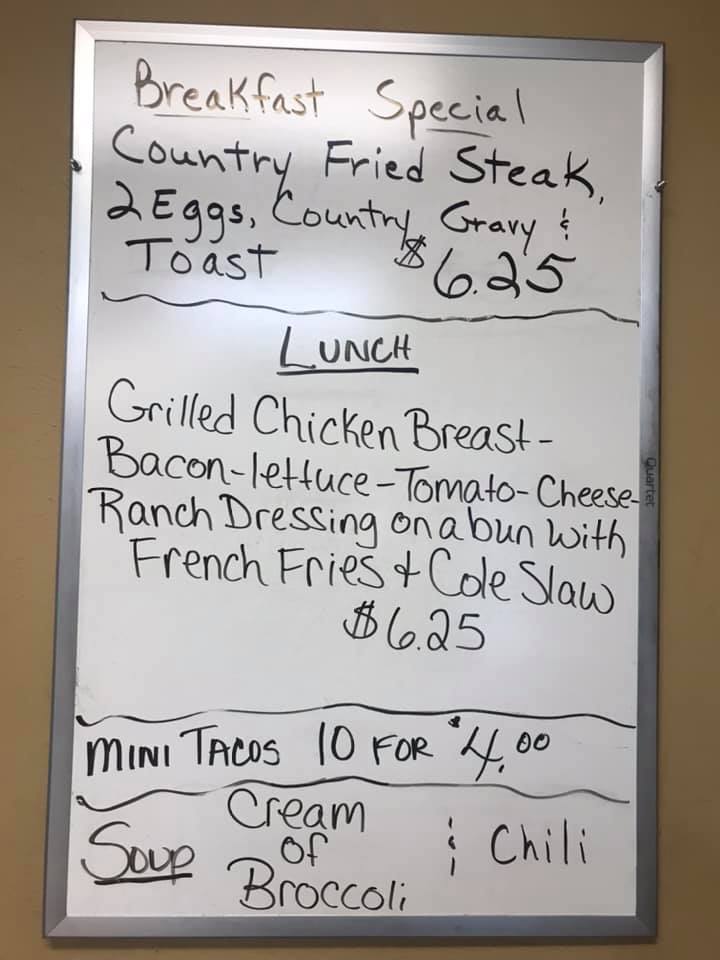 Breakfast Special
Country Fried Steak,
2 Eggs, Country Gravy &
Toast $6.25
LUNCH
Grilled Chicken Breast-
Bacon-lettuce-Tomato-Cheese-
Ranch Dressing on a bun with
French Fries & Cole Slaw
$6.25
MINI TACOS 10 FOR $4.00
Soup Cream of Broccoli & Chili
Quartet